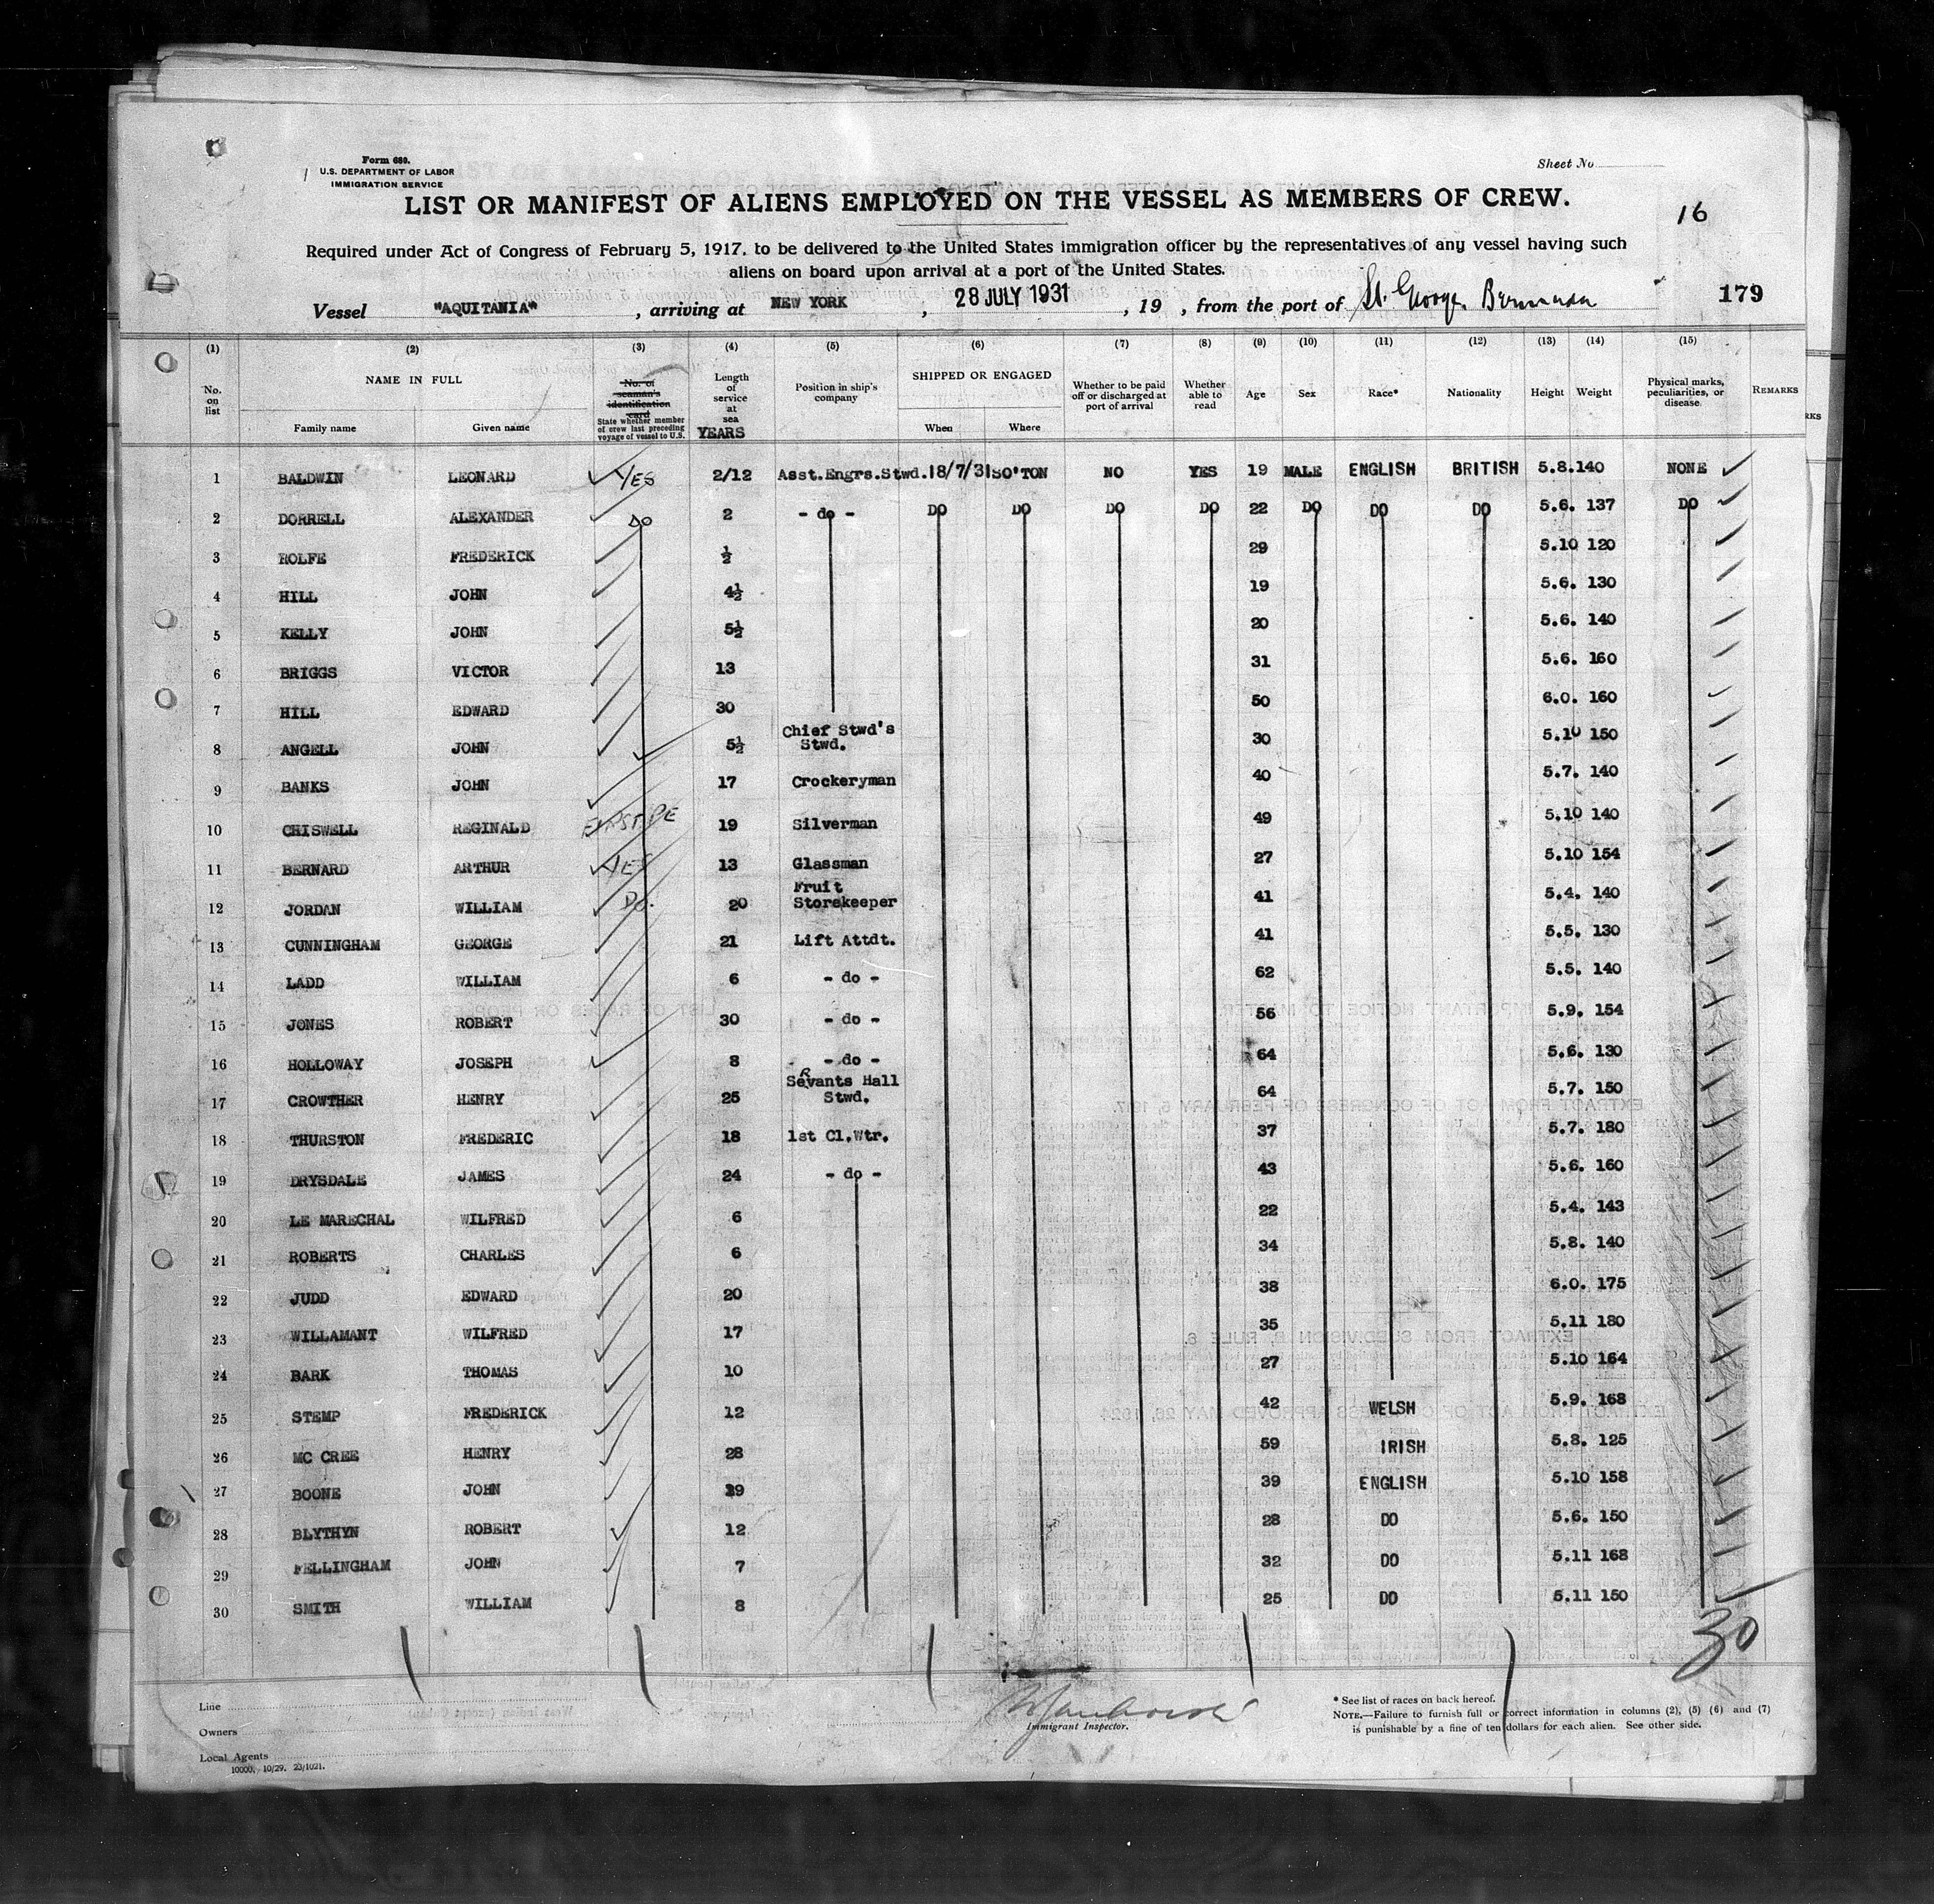 Form 680.
U.S. DEPARTMENT OF LABOR
IMMIGRATION SERVICE
Sheet No
LIST OR MANIFEST OF ALIENS EMPLOYED ON THE VESSEL AS MEMBERS OF CREW.
16
Required under Act of Congress of February 5, 1917, to be delivered to the United States immigration officer by the representatives of any vessel having such
aliens on board upon arrival at a port of the United States.
Vessel "AQUITANIA", arriving at NEW YORK, 28 JULY 1931, 19 , from the port of St. George, Bermuda 179
(1) (2) (3) (4) (5) (6) (7) (8) (9) (10) (11) (12) (13) (14) (15)
No. on list NAME IN FULL Family name Given name No. of seaman's identification card State whether member of crew last preceding voyage of vessel to U.S. Length of service at sea YEARS Position in ship's company SHIPPED OR ENGAGED When Where Whether to be paid off or discharged at port of arrival Whether able to read Age Sex Race* Nationality Height Weight Physical marks, peculiarities, or disease. REMARKS
1 BALDWIN LEONARD YES 2/12 Asst.Engrs.Stwd. 18/7/31 SO'TON NO YES 19 MALE ENGLISH BRITISH 5.8. 140 NONE
2 DORRELL ALEXANDER DO 2 - do - DO DO DO DO 22 DO DO DO 5.6. 137 DO
3 ROLFE FREDERICK ½ 29 5.10 120
4 HILL JOHN 4½ 19 5.6. 130
5 KELLY JOHN 5½ 20 5.6. 140
6 BRIGGS VICTOR 13 31 5.6. 160
7 HILL EDWARD 30 50 6.0. 160
8 ANGELL JOHN 5½ Chief Stwd's Stwd. 30 5.10 150
9 BANKS JOHN 17 Crockeryman 40 5.7. 140
10 CHISWELL REGINALD 19 Silverman 49 5.10 140
11 BERNARD ARTHUR YES 13 Glassman 27 5.10 154
12 JORDAN WILLIAM Do. 20 Fruit Storekeeper 41 5.4. 140
13 CUNNINGHAM GEORGE 21 Lift Attdt. 41 5.5. 130
14 LADD WILLIAM 6 - do - 62 5.5. 140
15 JONES ROBERT 30 - do - 56 5.9. 154
16 HOLLOWAY JOSEPH 8 - do - 64 5.6. 130
17 CROWTHER HENRY 25 SeRvants Hall Stwd. 64 5.7. 150
18 THURSTON FREDERIC 18 1st Cl.Wtr. 37 5.7. 180
19 DRYSDALE JAMES 24 - do - 43 5.6. 160
20 LE MARECHAL WILFRED 6 22 5.4. 143
21 ROBERTS CHARLES 6 34 5.8. 140
22 JUDD EDWARD 20 38 6.0. 175
23 WILLAMANT WILFRED 17 35 5.11 180
24 BARK THOMAS 10 27 5.10 164
25 STEMP FREDERICK 12 42 WELSH 5.9. 168
26 MC CREE HENRY 28 59 IRISH 5.8. 125
27 BOONE JOHN 39 ENGLISH 5.10 158
28 BLYTHYN ROBERT 12 28 DO 5.6. 150
29 FELLINGHAM JOHN 7 32 DO 5.11 168
30 SMITH WILLIAM 8 25 DO 5.11 150
30
Line
Owners
Local Agents
10000, 10/29. 23/1021.
Immigrant Inspector.
* See list of races on back hereof.
NOTE.—Failure to furnish full or correct information in columns (2), (5) (6) and (7)
is punishable by a fine of ten dollars for each alien. See other side.